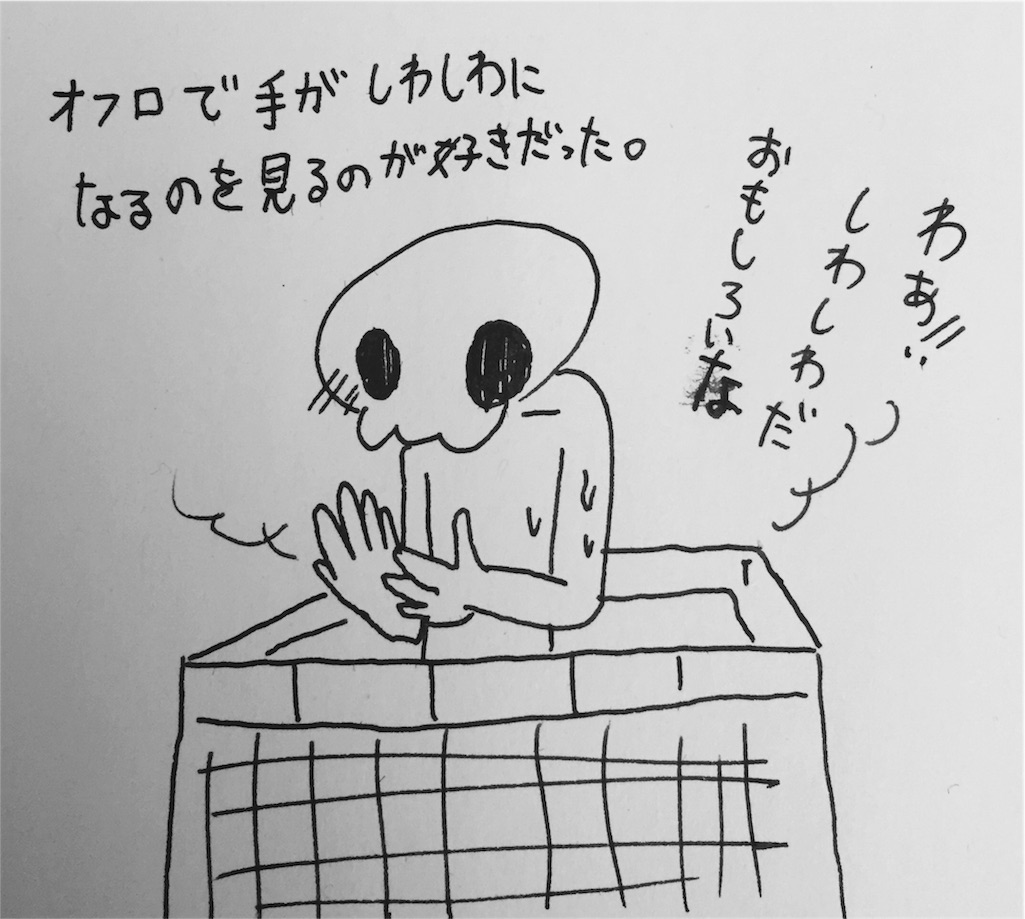 オフロで手がしわしわに
なるのを見るのが好きだった。
わぁ!!
しわしわだ
おもしろいな